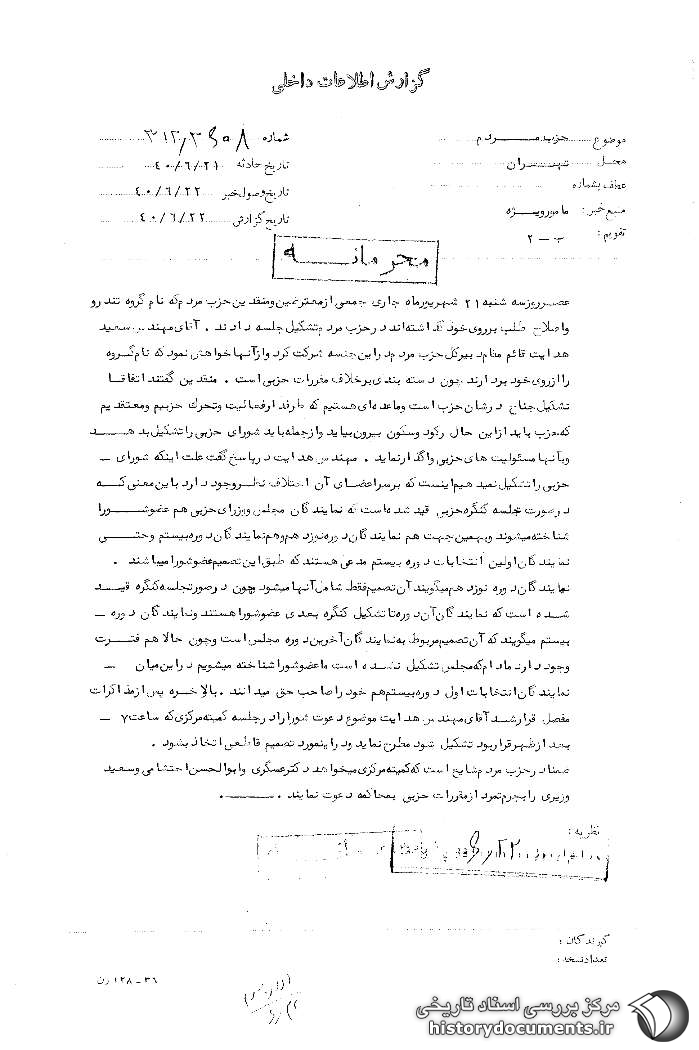 گزارش اطلاعات داخلی
موضوع حزب مردم
محل تهران
عطف بشماره
منبع خبر: مامور ویژه
تقویم: ب - ۲
شماره
تاریخ حادثه ۴۰/۶/۲۱
تاریخ وصول خبر ۴۰/۶/۲۲
تاریخ گزارش ۴۰/۶/۲۲
محرمانه
عصر روز سه شنبه ۲۱ شهریور ماه جاری جمعی از معترضین و منقدین حزب مردم که نام گروه تند رو
و اصلاح طلب بر روی خود گذاشته‌اند در حزب مردم تشکیل جلسه دادند . آقای مهندس سعید
هدایت قائم مقام دبیر کل حزب مردم در این جلسه شرکت کرد و از آنها خواهش نمود که نام گروه
را از روی خود بردارند چون دسته بندی بر خلاف مقررات حزبی است . منقدین گفتند اتفاقا
تشکیل جناح در شان حزب است و ما عده‌ای هستیم که طرفدار فعالیت و تحرک حزبیم و معتقدیم
که حزب باید از این حال رکود و سکون بیرون بیاید و از جمله باید شورای حزبی را تشکیل بدهد
و بآنها مسئولیت های حزبی واگذار نماید . مهندس هدایت در پاسخ گفت علت اینکه شورای -
حزبی را تشکیل نمیدهیم اینست که بر سر اعضای آن اختلاف نظر وجود دارد باین معنی که
در صورت جلسه کنگره حزبی قید شده است که نمایندگان مجلس و وزرای حزبی هم عضو شورا
شناخته میشوند و بهمین جهت هم نمایندگان دوره نوزدهم و هم نمایندگان دوره بیستم و حتی
نمایندگان اولین انتخابات دوره بیستم مدعی هستند که طبق این تصمیم عضو شورا میباشند .
نمایندگان دوره نوزدهم میگویند آن تصمیم فقط شامل آنها میشود چون در صورتجلسه کنگره قید
شده است که نمایندگان آن دوره تا تشکیل کنگره بعدی عضو شورا هستند و نمایندگان دوره -
بیستم میگویند که آن تصمیم مربوط به نمایندگان آخرین دوره مجلس است و چون حالا هم فترت
وجود دارد مادام که مجلس تشکیل نشده است ما عضو شورا شناخته میشویم در این میان -
نمایندگان انتخابات اول دوره بیستم هم خود را صاحب حق میدانند . بالاخره پس از مذاکرات
مفصل قرار شد آقای مهندس هدایت موضوع دعوت شورا را در جلسه کمیته مرکزی که ساعت ۷ -
بعد از ظهر قرار بود تشکیل شود مطرح نماید و در اینمورد تصمیم قاطعی اتخاذ بشود .
ضمنا در حزب مردم شایع است که کمیته مرکزی میخواهد دکتر عسگری و ابوالحسن احتشامی و سعید
وزیری را بجرم تمرد از مقررات حزبی بمحاکمه دعوت نمایند .
نظریه :
گیرندگان :
تعداد نسخه :
۳۶ - ۱۲۸ زن
مرکز بررسی اسناد تاریخی
historydocuments.ir